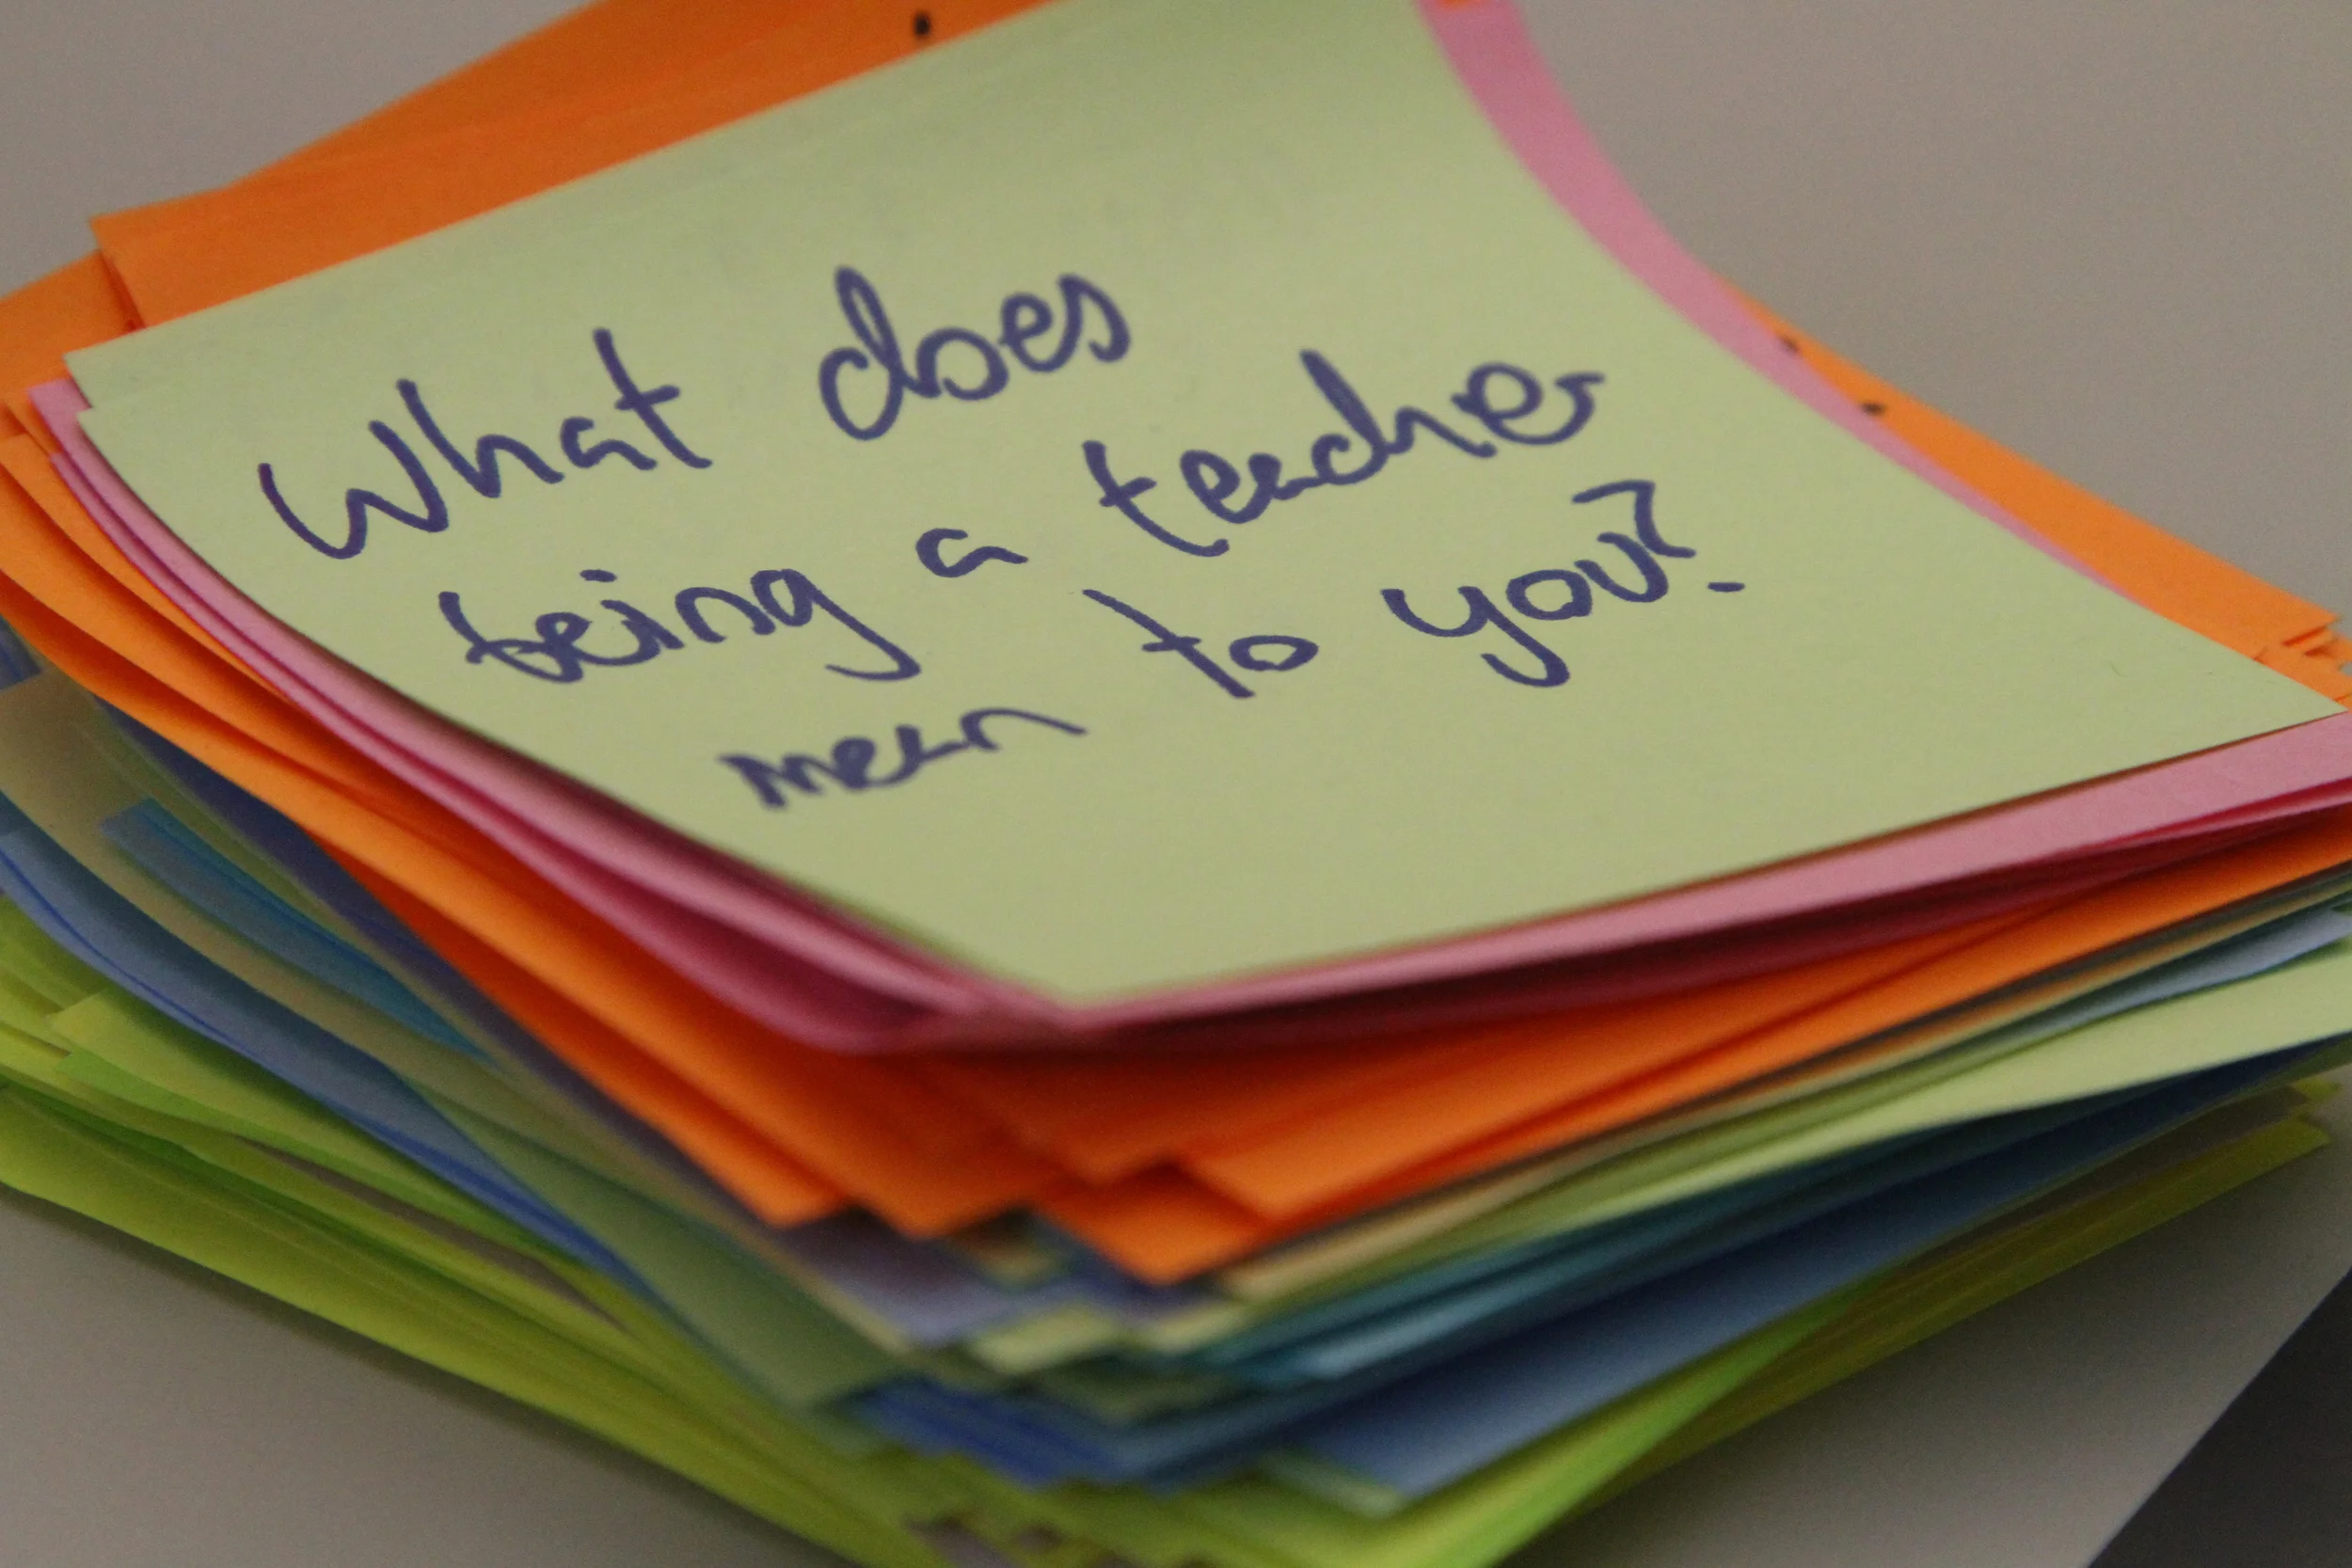 What does
being a teacher
mean to you?